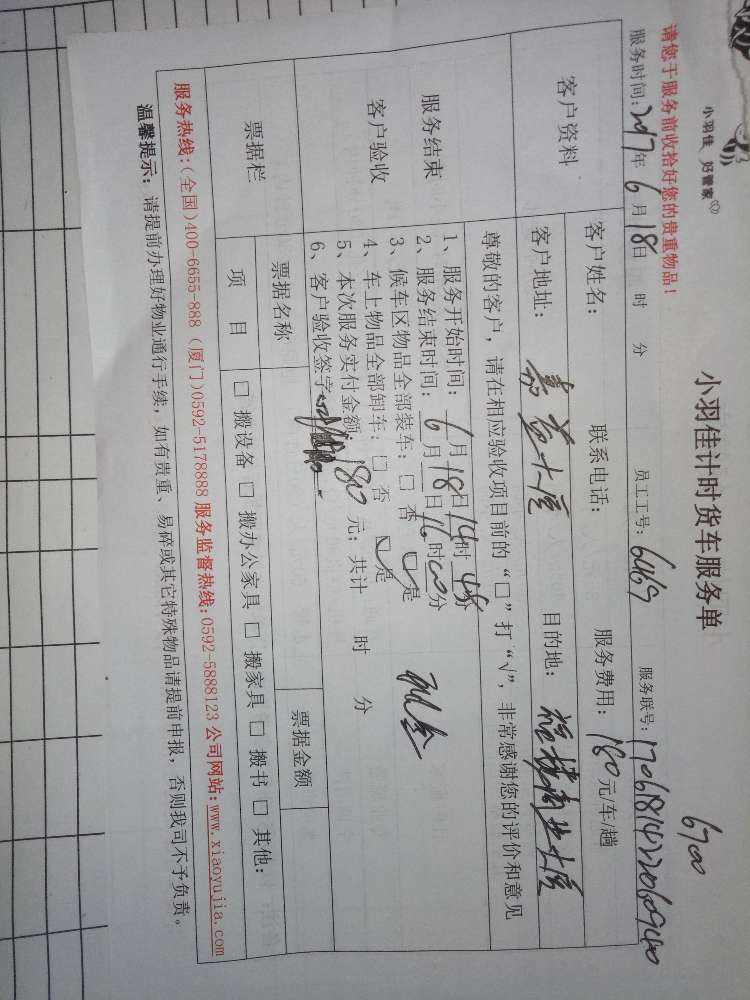 小羽佳 好管家
小羽佳计时货车服务单
6700
请您于服务前收拾好您的贵重物品！
服务时间：2017年6月18日 时 分 员工工号：6469 服务联号：
客户资料
客户姓名： 联系电话： 服务费用：180元/车/趟
客户地址：嘉益大厦 目的地：
服务结束
客户验收
尊敬的客户，请在相应验收项目前的“□”打“√”，非常感谢您的评价和意见
1、服务开始时间：6月18日14时45分
2、服务结束时间：6月18日16时00分
3、候车区物品全部装车：□ 否 □是
4、车上物品全部卸车：□ 否 □是
现金
5、本次服务实付金额180元；共计 时 分
6、客户验收签字
票据栏
票据名称 票据金额
项 目 □ 搬设备 □ 搬办公家具 □ 搬家具 □ 搬书 □ 其他：
服务热线：(全国)400-6655-888 (厦门)0592-5178888 服务监督热线：0592-5888123 公司网站：www.xiaoyujia.com
温馨提示：请提前办理好物业通行手续，如有贵重、易碎或其它特殊物品请提前申报，否则我司不予负责。